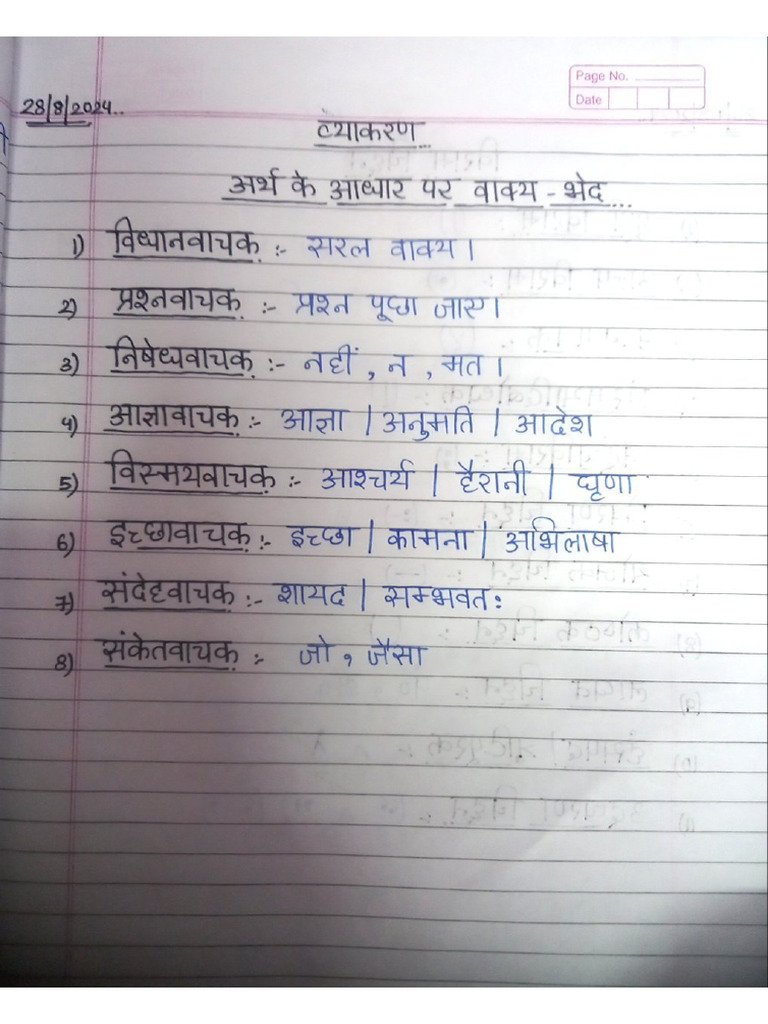 Page No.
Date
28/8/2024..
व्याकरण...
अर्थ के आधार पर वाक्य - भेद...
1) विधानवाचक :- सरल वाक्य।
2) प्रश्नवाचक :- प्रश्न पूछा जाए।
3) निषेधवाचक :- नहीं , न , मत ।
4) आज्ञावाचक :- आज्ञा | अनुमति | आदेश
5) विस्मयवाचक :- आश्चर्य | हैरानी | घृणा
6) इच्छावाचक :- इच्छा | कामना | अभिलाषा
7) संदेहवाचक :- शायद | सम्भवतः
8) संकेतवाचक :- जो , जैसा